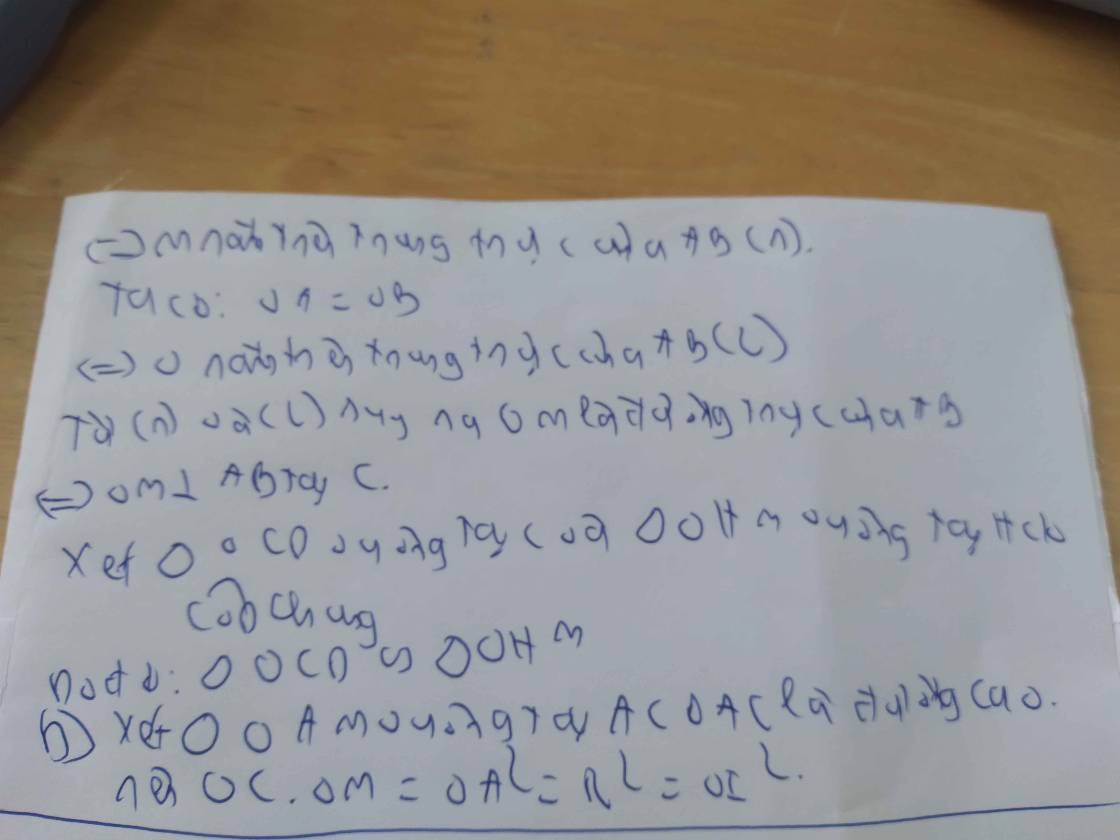 (=) M nằm trên trung trực của AB (1).
Ta có: OA = OB
(=) O nằm trên trung trực của AB (2)
Từ (1) và (2) suy ra OM là đường trực của AB
(=) OM ⊥ AB tại C.
Xét Δ OCD vuông tại C và Δ OHM vuông tại H có
chung
Do đó: Δ OCD ∽ Δ OHM
b) Xét Δ OAM vuông tại A có AC là đường cao.
nên OC . OM = OA² = R² = OI².